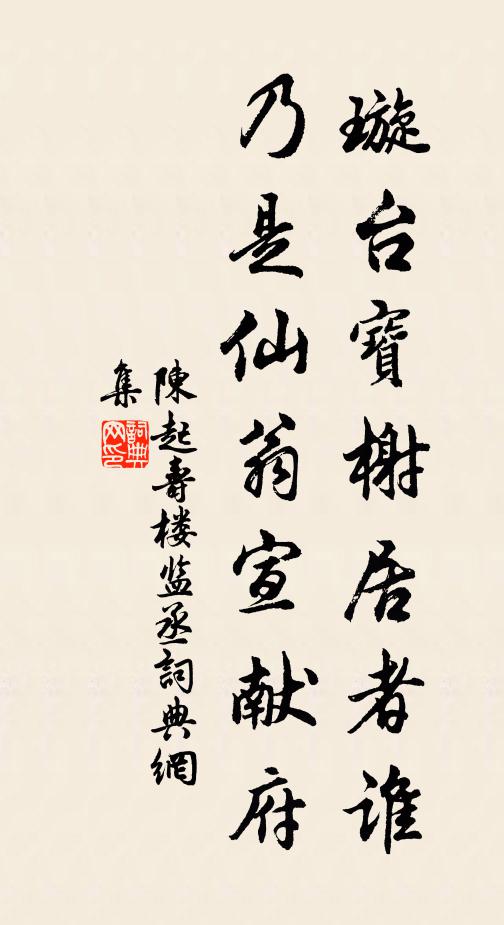 璇台寶榭居者誰
乃是仙翁宣献府
陳起壽楼监丞詞典網
集
詞典网印